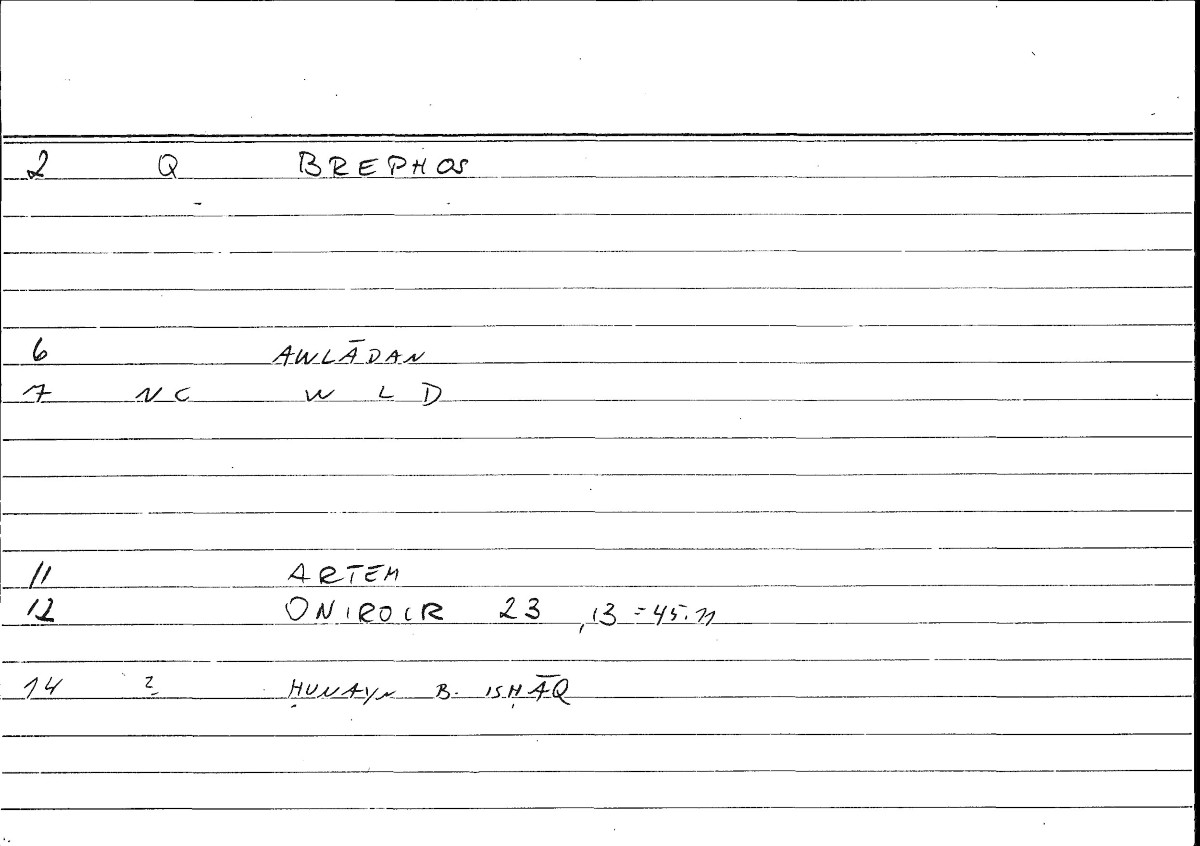 2 Q BREPHOS
6 AWLĀDAN
7 NC W L D
11 ARTEM
12 ONIROCR 23 ,13 = 45.11
14 2 ḤUNAYN B. ISḤĀQ